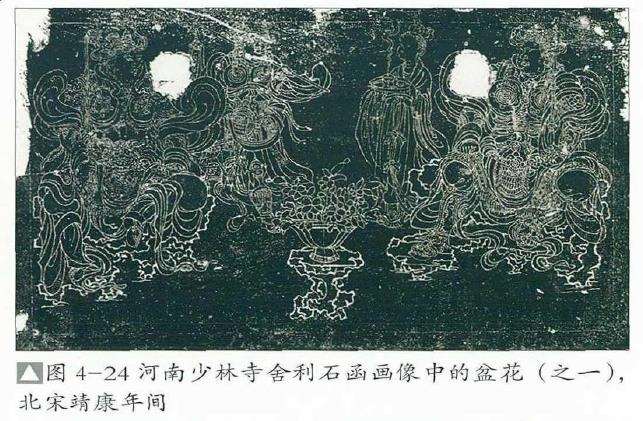 图 4-24 河南少林寺舍利石函画像中的盆花（之一），
北宋靖康年间